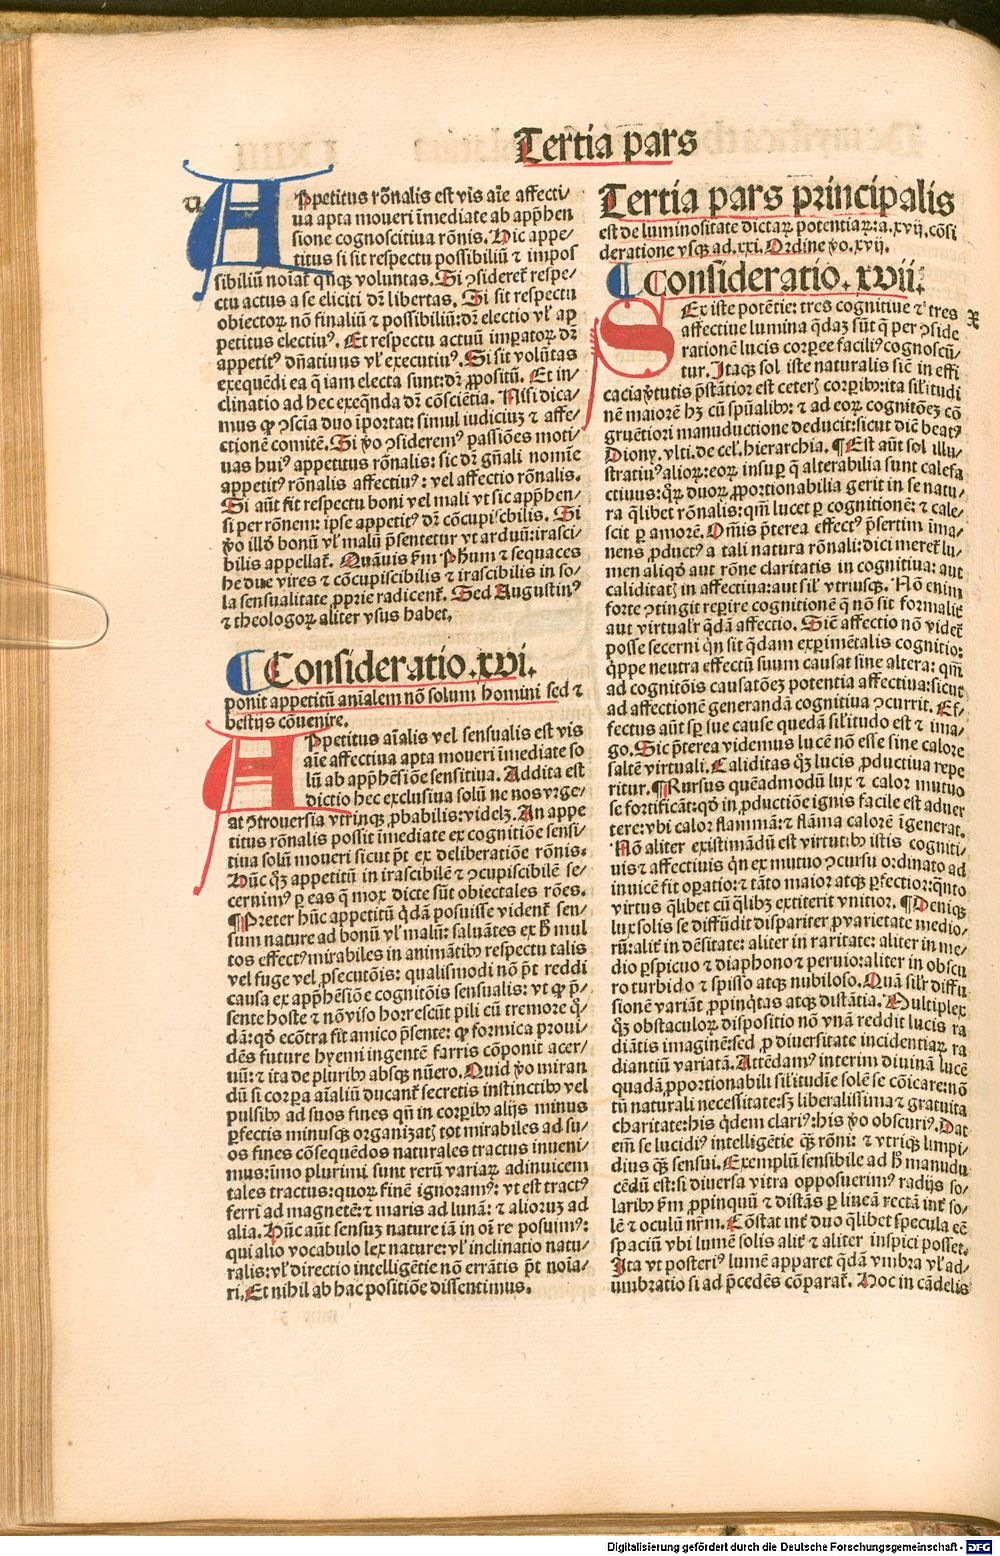 Tertia pars
v
APpetitus rõnalis est vis aĩe affecti/
ua apta moueri ĩmediate ab app̃hen
sione cognoscitiua rõnis. Hic appe/
titus si sit respectu possibiliũ ⁊ impos
sibiliũ noĩat̃ qñqꝫ voluntas. Si ꝯsideret̃ respe/
ctu actus a se eliciti dr̃ libertas. Si sit respectu
obiectoꝝ nõ finaliũ ⁊ possibiliũ: dr̃ electio vl̃ ap
petitus electiuꝰ. Et respectu actuũ imꝑatoꝝ dr̃
appetitꝰ dñatiuus vl̃ executiuꝰ. Si sit volũtas
exequẽdi ea q̃ iam electa sunt: dr̃ ꝓpositũ. Et in/
clinatio ad hec exeq̃nda dr̃ cõsciẽtia. Nisi dica/
mus ꝙ ꝯsciã duo ĩportat: simul iudiciuꝫ ⁊ affe/
ctionẽ comitẽ. Si ṽo ꝯsideremꝰ passiões moti/
uas huiꝰ appetitus rõnalis: sic dr̃ gñali nomĩe
appetitꝰ rõnalis affectiuꝰ: vel affectio rõnalis.
Si aũt fit respectu boni vel mali vt sic app̃hen/
si per rõnem: ipse appetitꝰ dr̃ cõcupiscibilis. Si
ṽo illđ bonũ vl̃ malũ p̃sentetur vt arduũ: irasci/
bilis appellat̃. Quãuis ẜm Ph̃um ⁊ sequaces
he due vires ⁊ cõcupiscibilis ⁊ irascibilis in so/
la sensualitate ꝓprie radicent̃. Sed Augustinꝰ
⁊ theologoꝝ aliter vsus habet.
¶ Consideratio .xvi.
ponit appetitũ aniãlem nõ solum homini sed ⁊
bestijs cõuenire.
APpetitus aĩalis vel sensualis est vis
aĩe affectiua apta moueri ĩmediate so
lũ ab app̃hẽsiõe sensitiua. Addita est
dictio hec exclusiua solũ ne nos vrge/
at ꝯtrouersia vtrinqꝫ ꝓbabilis: videlꝫ. An appe
titus rõnalis possit ĩmediate ex cognitiõe sensi/
tiua solũ moueri sicut p̃t ex deliberatiõe rõnis.
Hũc q̃ꝫ appetitũ in irascibilẽ ⁊ ꝯcupiscibilẽ se/
cernimꝰ ꝑ eas q̃ mox dicte sũt obiectales rões.
¶Preter hũc appetitũ q̃dã posuisse vident̃ sen/
sum nature ad bonũ vl̃ malũ: saluãtes ex h̃ mul
tos effectꝰ mirabiles in animãtibꝰ respectu talis
vel fuge vel ꝓsecutõis: qualismodi nõ p̃t reddi
causa ex app̃hẽsiõe cognitõis sensualis: vt ꝙ p̃/
sente hoste ⁊ nõ viso horrescũt pili cũ tremore q̃/
dã: qđ ecõtra fit amico p̃sente: ꝙ formica proui/
dẽs future hyemi ingentẽ farris cõponit acer/
uũ: ⁊ ita de pluribꝰ absqꝫ nũero. Quid ṽo miran
dũ si corꝑa aĩaliũ ducant̃ secretis instinctibꝰ vel
pulsibꝰ ad suos fines qñ in corꝑibꝰ alijs minus
ꝑfectis minusqꝫ organizatꝫ tot mirabiles ad su/
os fines cõsequẽdos naturales tractus inueni/
mus: ĩmo plurimi sunt rerũ variaꝝ adinuicem
tales tractus: quoꝝ finẽ ignoramꝰ: vt est tractꝰ
ferri ad magnetẽ: ⁊ maris ad lunã: ⁊ alioruꝫ ad
alia. Hũc aũt sensuꝫ nature iã in oĩ re posuimꝰ:
qui alio vocabulo lex nature: vl̃ inclinatio natu/
ralis: vl̃ directio intelligẽtie nõ errãtis p̃t noĩa/
ri. Et nihil ab hac positiõe dissentimus.
Tertia pars principalis
est de luminositate dictaꝝ potentiaꝝ: a .xvij. cõsi
deratione vsqꝫ ad .xxi. Ordine ṽo .xvij.
¶ Consideratio .xvii.
SEx iste potẽtie: tres cognitiue ⁊ tres
affectiue lumina q̃daꝫ sũt q̃ per ꝯside
rationẽ lucis corꝑee faciliꝰ cognoscũ/
tur. Itaqꝫ sol iste naturalis sic̃ in effi
cacia ṽtutis p̃stãtior est ceterꝫ corꝑibꝰ: ita sil̃itudi
nẽ maiorẽ hꝫ cũ spũalibꝰ: ⁊ ad eoꝝ cognitõeꝫ cõ
gruẽtiori manuductione deducit: sicut diẽ beatꝰ
Diony. vlti. de cel̃. hierarchia. ¶Est aũt sol illu/
stratiuꝰ alioꝝ: eoꝝ insuꝑ q̃ alterabilia sunt calefa
ctiuus: q̃ꝝ duoꝝ ꝓportionabilia gerit in se natu/
ra q̃libet rõnalis: qm̃ lucet ꝑ cognitionẽ: ⁊ cale/
scit ꝑ amorẽ. Om̃is p̃terea effectꝰ p̃sertim ĩma/
nens ꝓductꝰ a tali natura rõnali: dici meret̃ lu/
men aliqđ aut rõne claritatis in cognitiua: aut
caliditatꝫ in affectiua: aut sil̃r vtriusqꝫ. Nõ enim
forte ꝯtingit reꝑire cognitionẽ q̃ nõ sit formalit̃
aut virtualr̃ q̃dã affectio. Sic̃ affectio nõ videt̃
posse secerni q̃n sit q̃dam exꝑimẽtalis cognitio:
q̃ppe neutra effectũ suum causat sine altera: qm̃
ad cognitõis causatõeꝫ potentia affectiua: sicut
ad affectionẽ generandã cognitiua ꝯcurrit. Ef/
fectus aũt sp̃ sue cause quedã sil̃itudo est ⁊ ima/
go. Sic p̃terea videmus lucẽ nõ esse sine calore
saltẽ virtuali. Caliditas q̃ꝫ lucis ꝓductiua repe
ritur. ¶Rursus quẽadmodũ lux ⁊ calor mutuo
se fortificãt: qđ in ꝓductiõe ignis facile est aduer
tere: vbi calor flammã: ⁊ flãma calorẽ ĩgenerat.
Nõ aliter existimãdũ est virtutibꝰ istis cogniti/
uis ⁊ affectiuis q̃n ex mutuo ꝯcursu ordinato ad
inuicẽ fit oꝑatio: ⁊ tãto maior atqꝫ ꝑfectior: q̃nto
virtus q̃libet cũ q̃libꝫ extiterit vnitior. ¶Deniqꝫ
lux solis se diffũdit dispariter ꝓ varietate medio/
rũ: alit̃ in dẽsitate: aliter in raritate: aliter in me/
dio ꝑspicuo ⁊ diaphono ⁊ peruio: aliter in obscu
ro turbido ⁊ spisso atqꝫ nubiloso. Quã sil̃r diffu
sionẽ variãt ꝓpinq̃tas atqꝫ distãtia. Multiplex
q̃ꝫ obstaculoꝝ dispositio nõ vnã reddit lucis ra
diãtis imaginẽ: sed ꝓ diuersitate incidentiaꝝ ra
diantiũ variatã. Attẽdamꝰ interim diuinã lucẽ
quadã ꝓportionabili sil̃itudĩe solẽ se cõicare: nõ
tñ naturali necessitate: sꝫ liberalissima ⁊ gratuita
charitate: his q̃dem clariꝰ: his ṽo obscuriꝰ. Dat
em̃ se lucidiꝰ intelligẽtie q̃ꝫ rõni: ⁊ vtriqꝫ limpi/
dius q̃ꝫ sensui. Exemplũ sensibile ad h̃ manudu
cẽdũ est: si diuersa vitra opposuerimꝰ radijs so/
laribꝰ ẜm ꝓpinquũ ⁊ distãs ꝑ lineã rectã int̃ so/
lẽ ⁊ oculũ nr̃m. Cõstat int̃ duo q̃libet specula eẽ
spaciũ vbi lumẽ solis alit̃ ⁊ aliter inspici posset.
Ita vt posteriꝰ lumẽ apparet q̃dã vmbra vl̃ ad/
umbratio si ad p̃cedẽs cõparat̃. Hoc in cãdelis